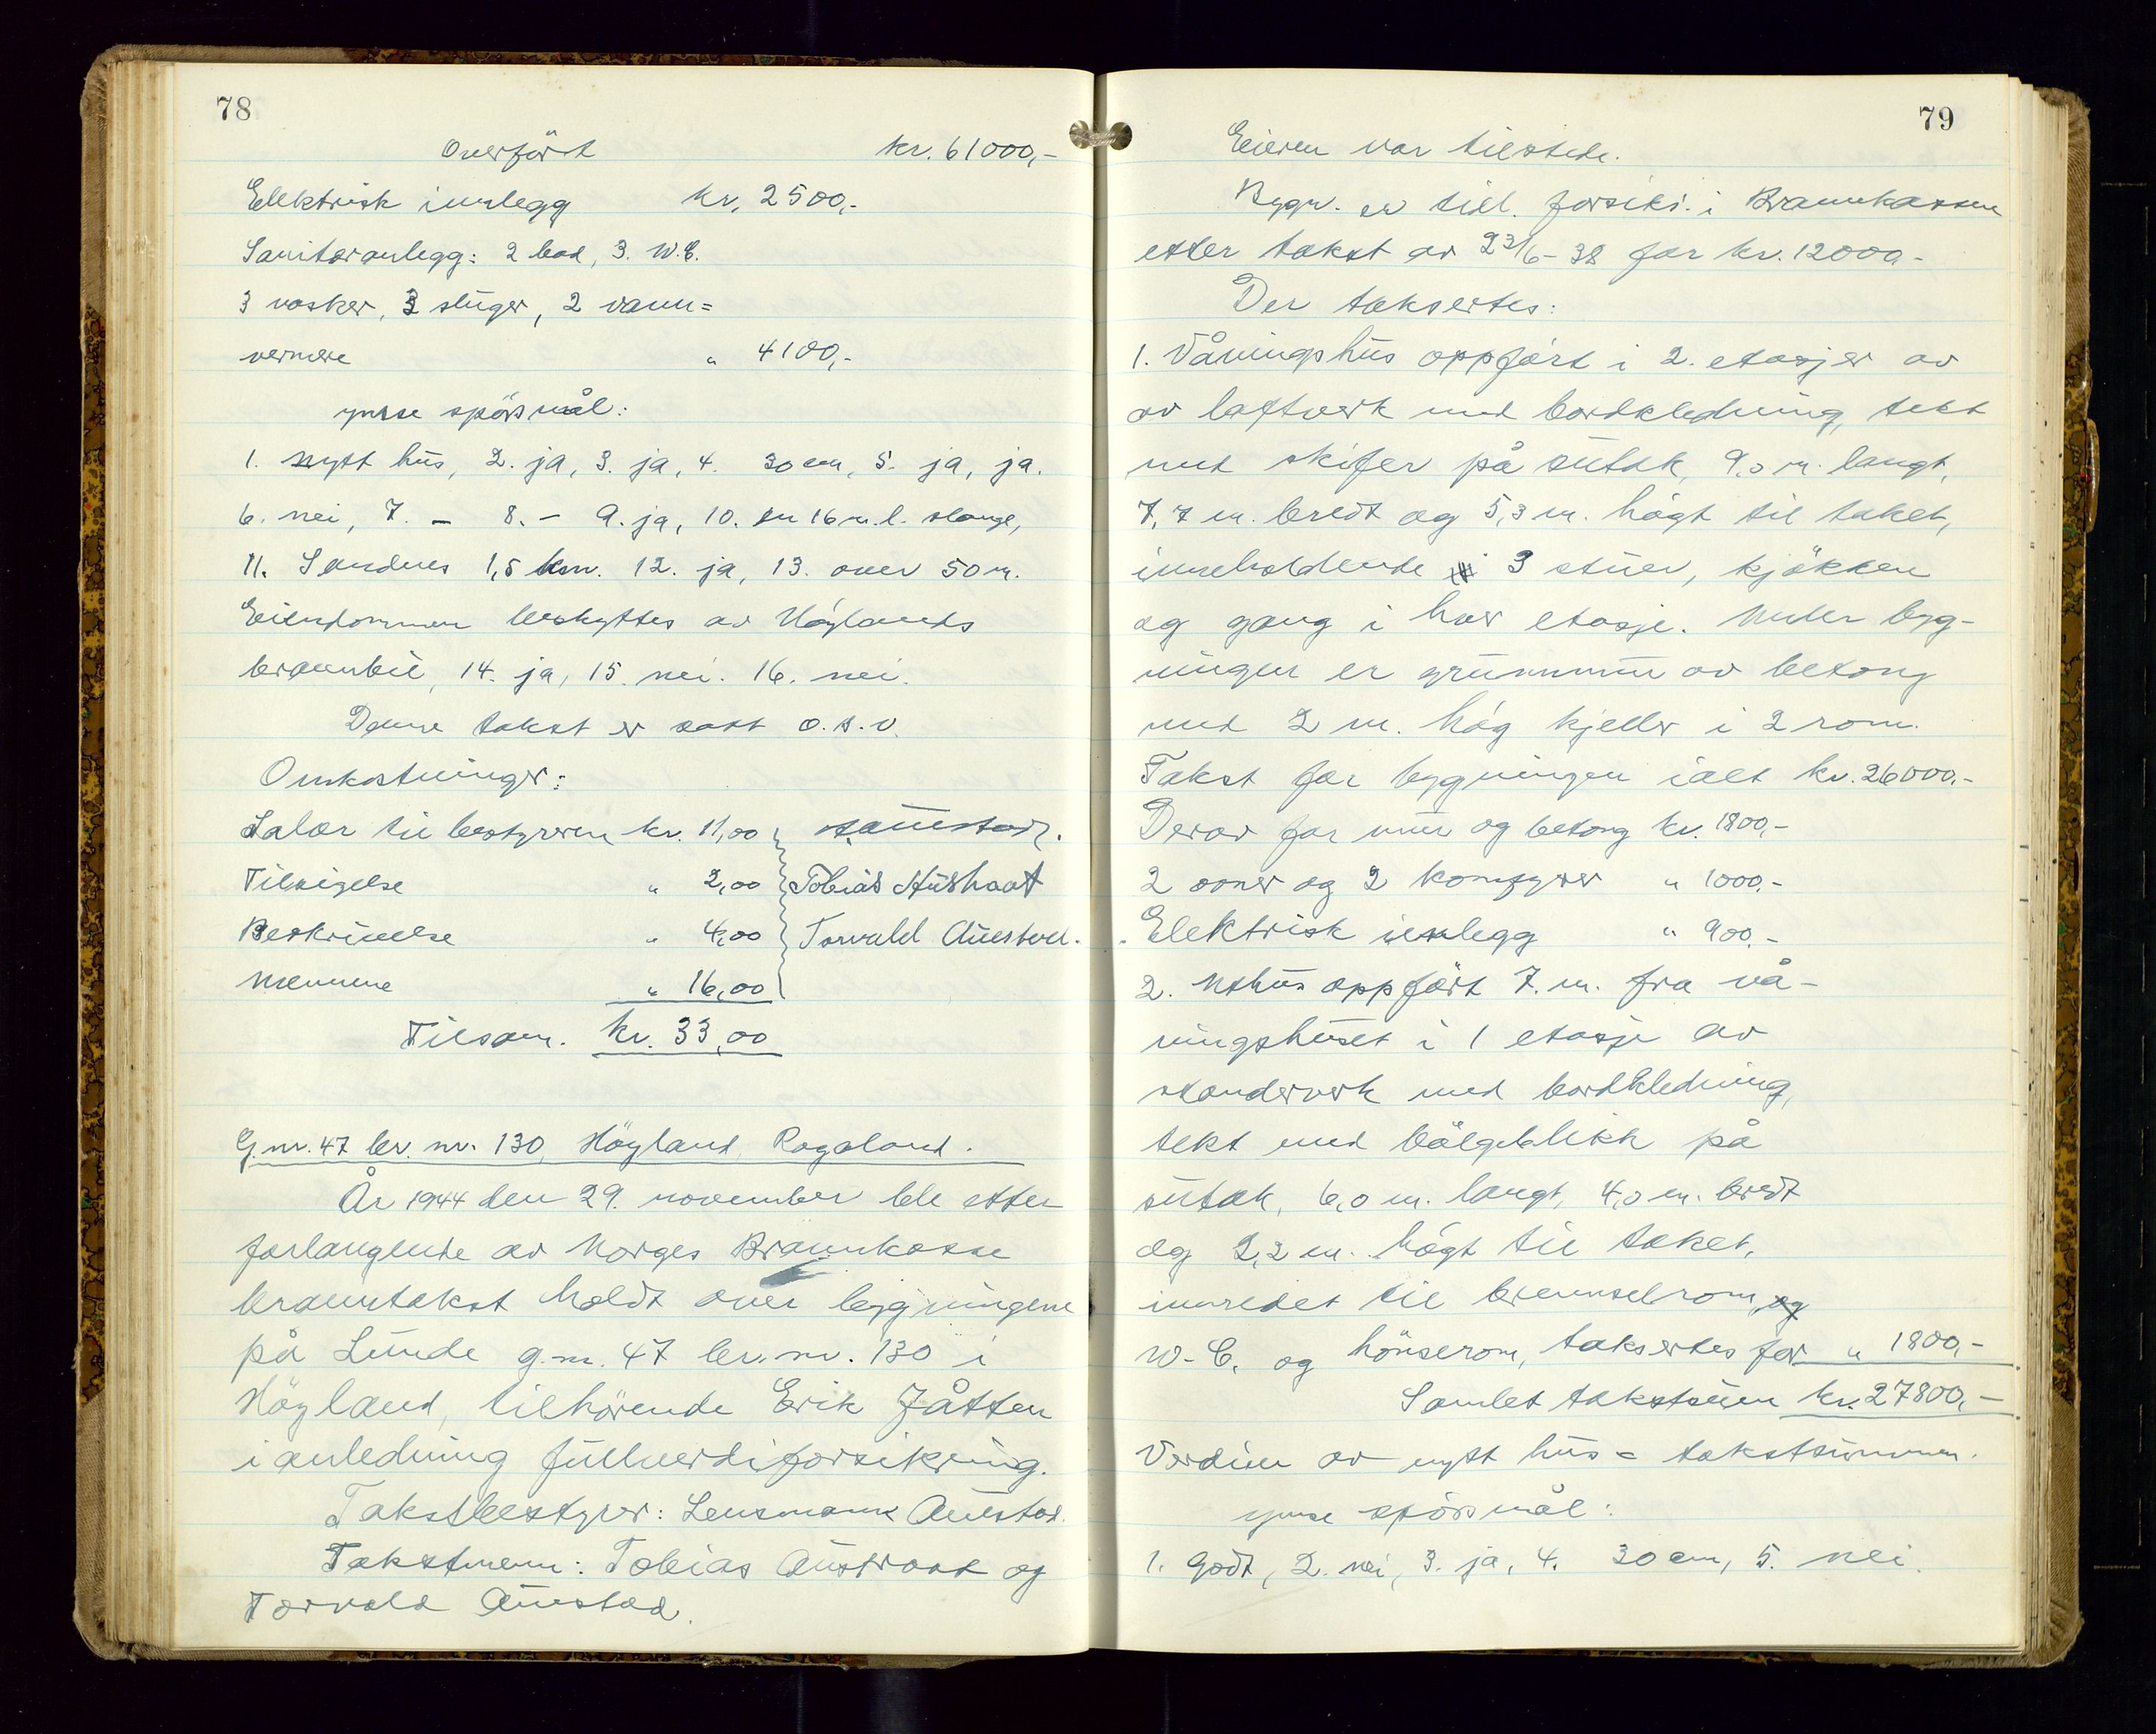 78
Overført kr. 61000,-
Elektrisk innlegg kr. 2500,-
Sanitæranlegg: 2 bad, 3. W.C.
3 vasker, 3 sluger, 2 vann=
vermere " 4100,-
ymse spörsmål:
1. nytt hus, 2. ja, 3. ja, 4. 30 cm, 5. ja, ja.
6. nei, 7. - 8. - 9. ja, 10. en 16 m. l. slange,
11. Sandnes 1,5 km. 12. ja, 13. over 50 m.
Eiendommen beskyttes av Höylands
brannbil, 14. ja, 15. nei. 16. nei.
Denne takst er satt o.s.v.
Omkostninger:
Salær til bestyreren kr. 11,00
Tilsigelse " 2,00 Tobias Austraat
Beskrivelse " 4,00 Torvald Auestad.
Mennene " 16,00
Tilsam. kr. 33,00
G.nr. 47 br. nr. 130, Höyland, Rogaland.
År 1944 den 29. november ble etter
forlangende av Norges Brannkasse
branntakst holdt over bygningene
på Lunde g.nr. 47 br.nr. 130 i
Höyland, tilhörende Erik Jåtten
i anledning fullverdiforsikring.
Takstbestyrer: Lensmann Auestad.
Takstmenn: Tobias Austraat og
Torvald Auestad.
79
Eieren var tilstede.
Bygn. er tidl. forsikr. i Brannkassen
etter takst av 23/6-38 for kr. 12000-
Der taksertes:
1. Våningshus oppfört i 2. etasjer av
av laftverk med bordkledning, tekt
med skifer på sutak, 9,0 m. langt,
7,7 m. bredt og 5,3 m. högt til taket,
inneholdende 3 stuer, kjökken
og gang i hver etasje. Under byg-
ningen er grunnmur av betong
med 2 m. hög kjeller i 2 rom.
Takst for bygningen ialt kr. 26000.-
Derav for mur og betong kr. 1800,-
2 ovner og 2 komfyrer " 1000.-
Elektrisk innlegg " 900.-
2. Uthus oppfört 7. m. fra vå-
ningshuset i 1 etasje av
standerverk med bordkledning,
tekt med bölgeblikk på
sutak, 6,0 m. langt, 4,0 m. bredt
og 2,2 m. högt til taket,
innredet til brenselrom, og
W-C. og hönserom, taksertes for " 1800,-
Samlet takstsum kr. 27800,-
Verdien av nytt hus = takstsummen.
ymse spörsmål:
1. Godt, 2. nei, 3. ja, 4. 30 cm, 5. nei.